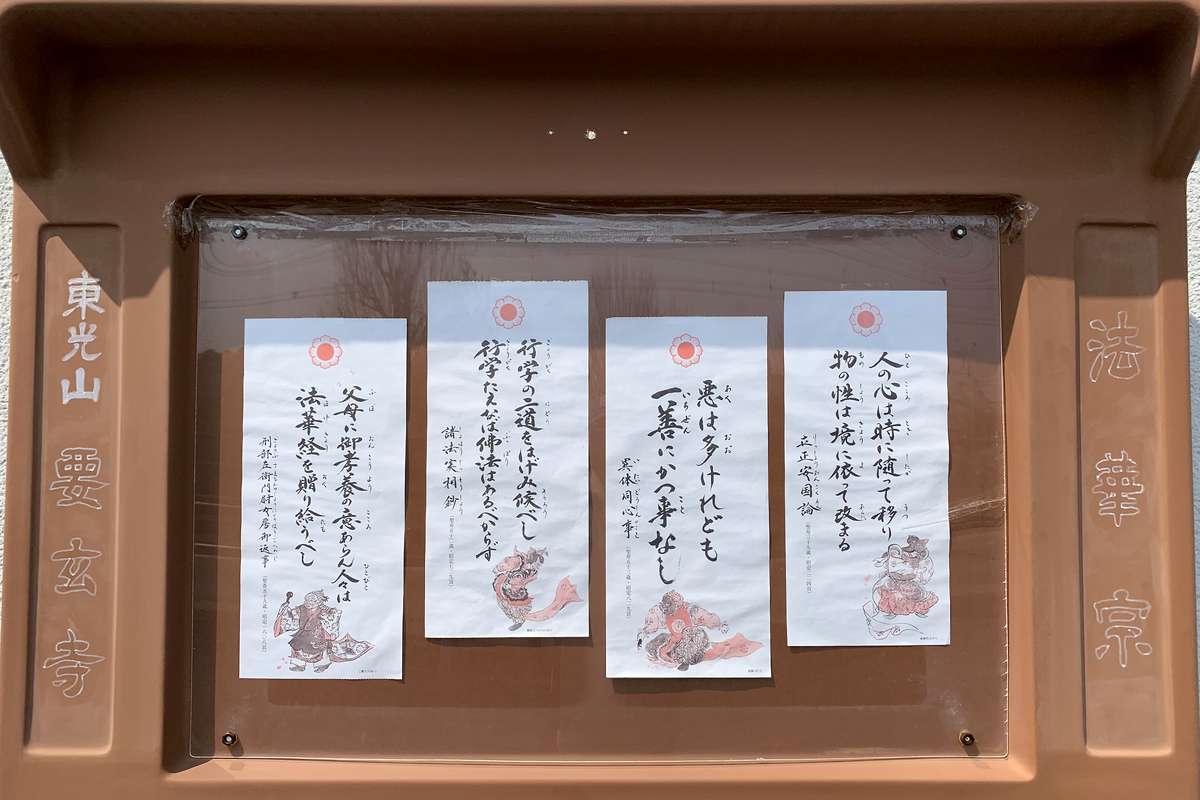 法華宗
人の心は時に随って移り
物の性は境に依って改まる
立正安国論
悪は多けれども
一善にかつ事なし
異体同心事
行学の二道をはげみ候べし
行学たえなば佛法はあるべからず
諸法実相鈔
父母に御孝養の意あらん人々は
法華経を贈り給うべし
刑部左衛門尉女房御返事
東光山要玄寺